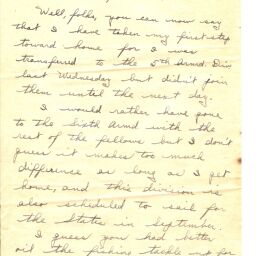 Well, folks, you can now say
that I have taken my first step
toward home for I was
transfered to the 5th Armd. Div
last Wednesday but didn't join
them until the next day.
I would rather have gone
to the sixth Armd with the
rest of the fellows but I don't
guess it makes too much
difference as long as I get
home, and this division is
also scheduled to sail for
the States in September.
I guess you had better
oil the fishing tackle up for